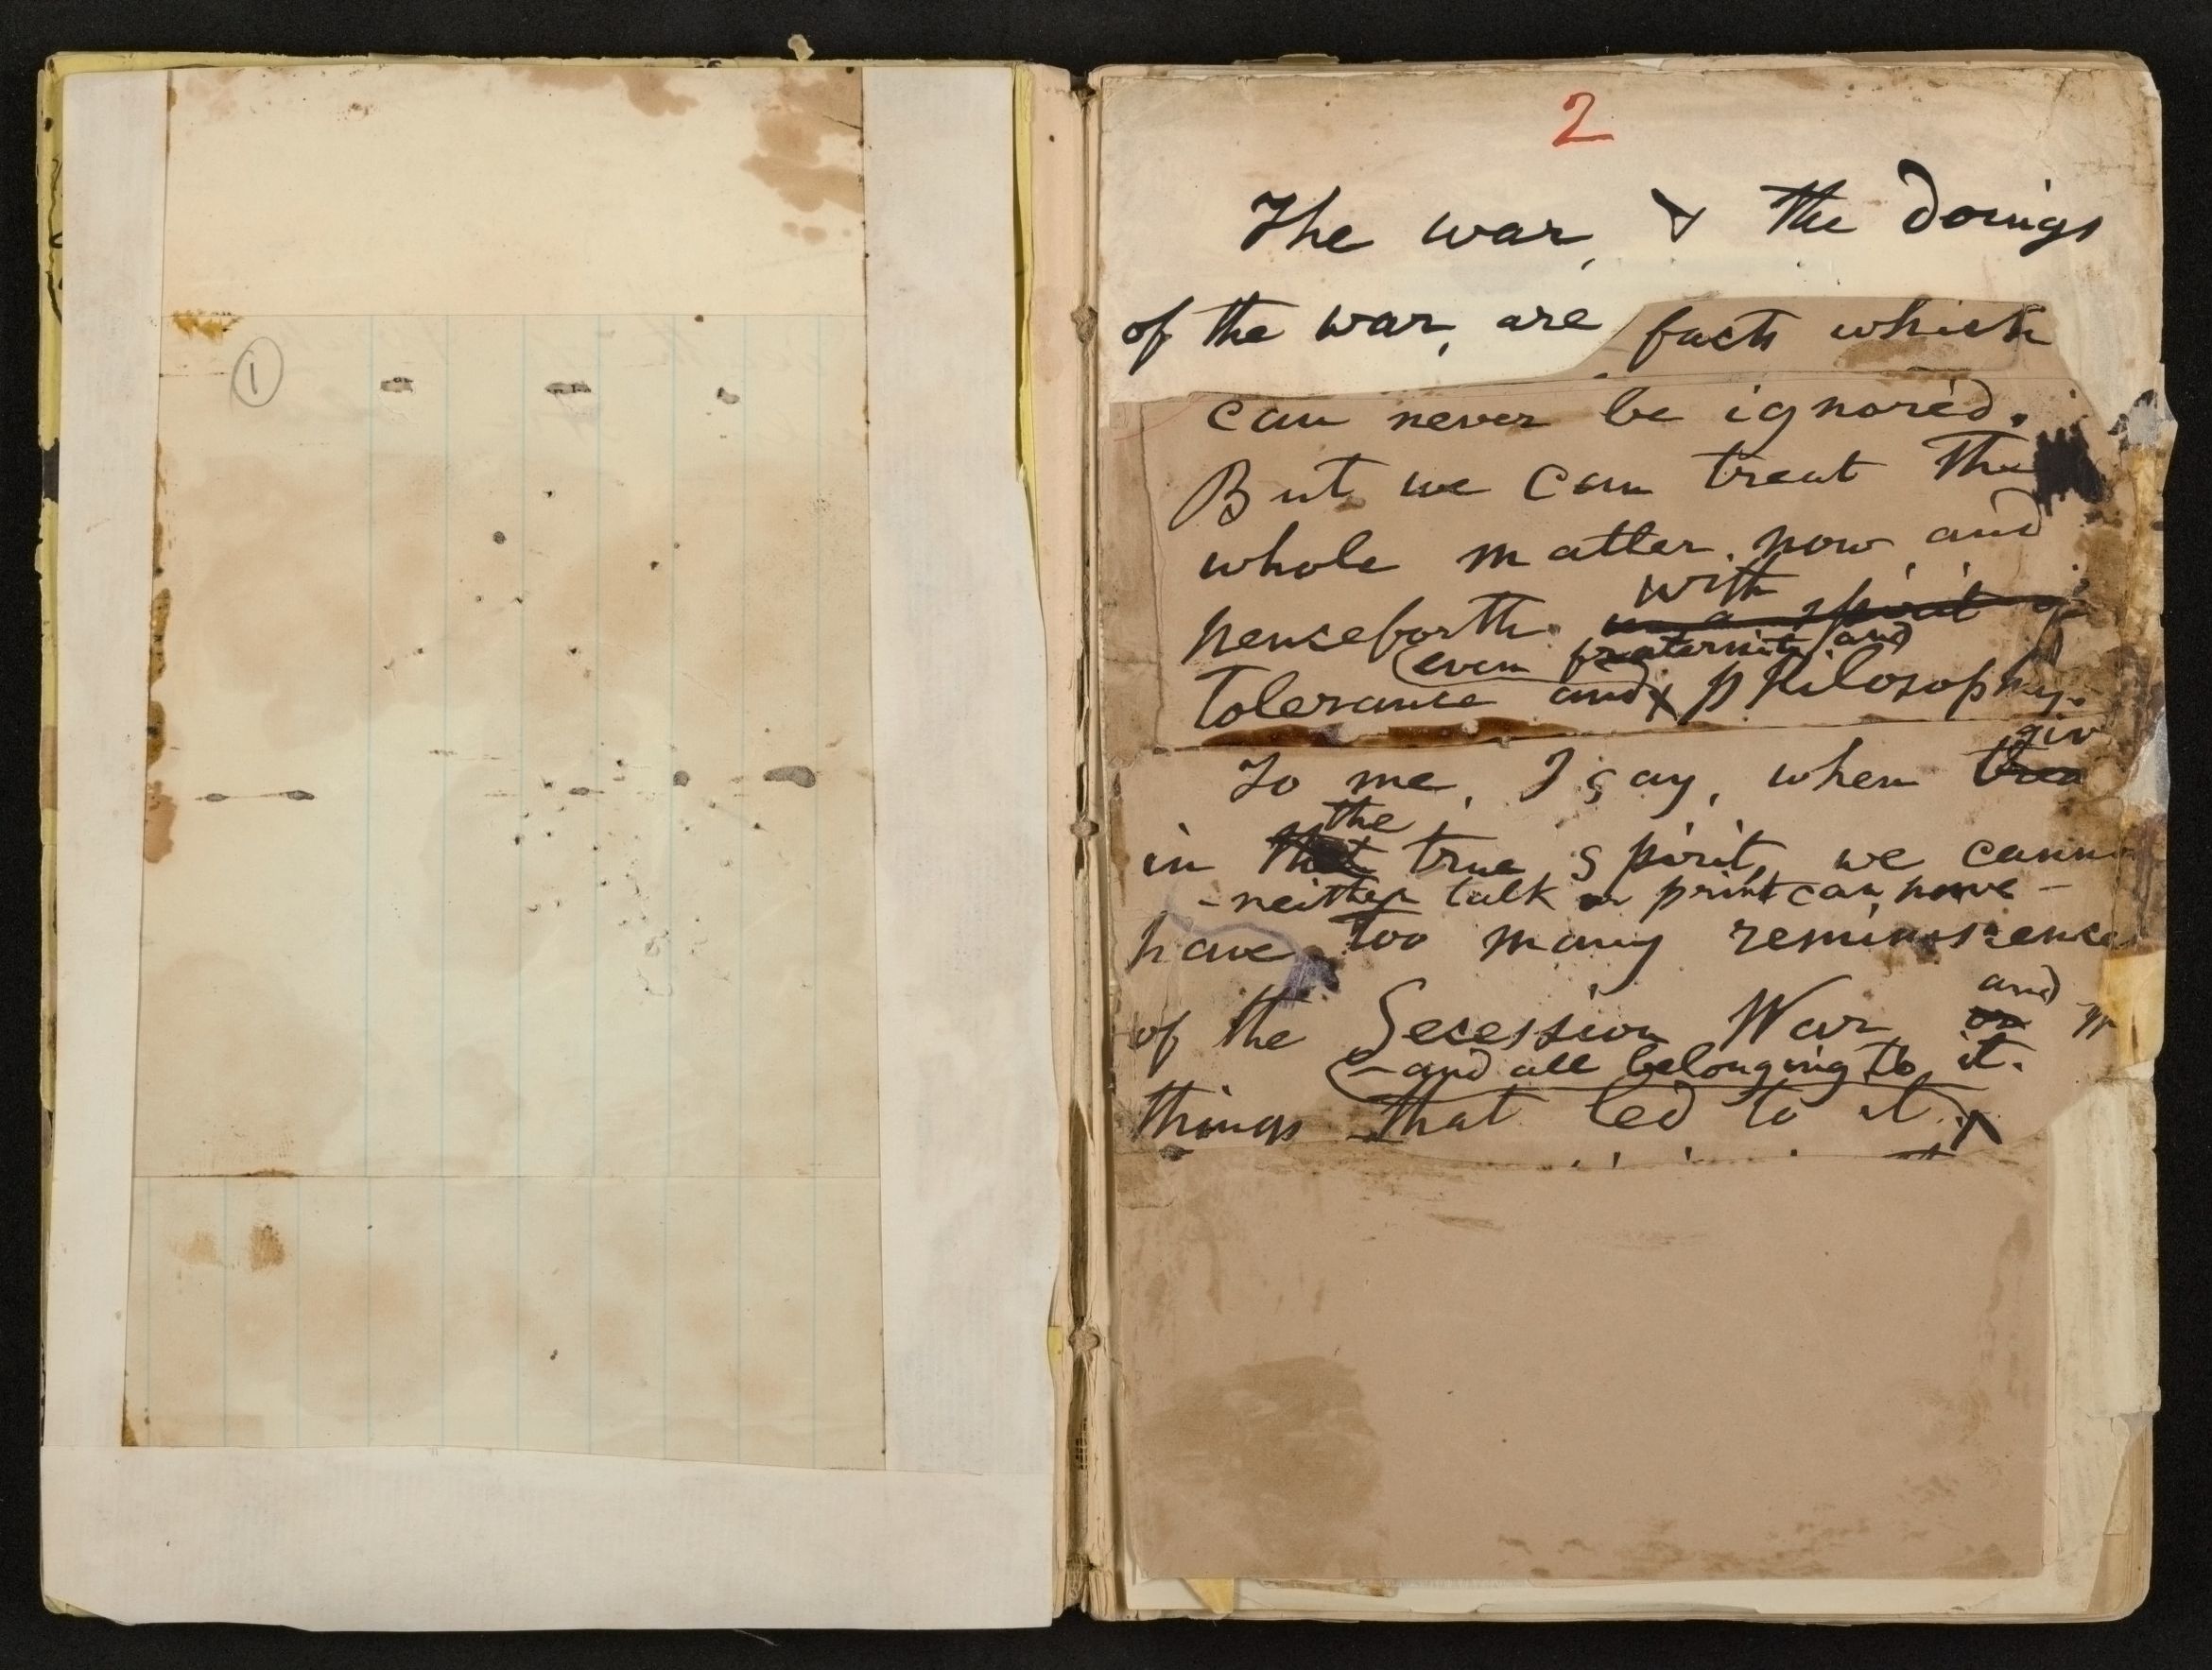 1
2
The war, & the doings
of the war, are facts which
can never be ignored.
But we can treat the
whole matter, now and
with
henceforth in a spirit of
even fraternity and
tolerance and philosophy.
giv
To me, I say, when trea
the
in that true spirit, we canno
- neither talk or print can, have -
have too many reminiscences
of the Secession War and
or
- and all belonging to it.
things that led to it